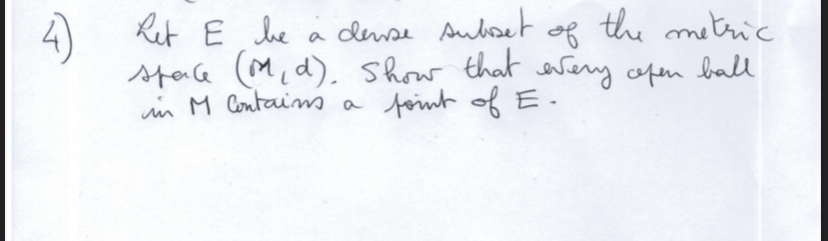 4) Let E be a dense subset of the metric
space (M, d). Show that every open ball
in M Contains a point of E.